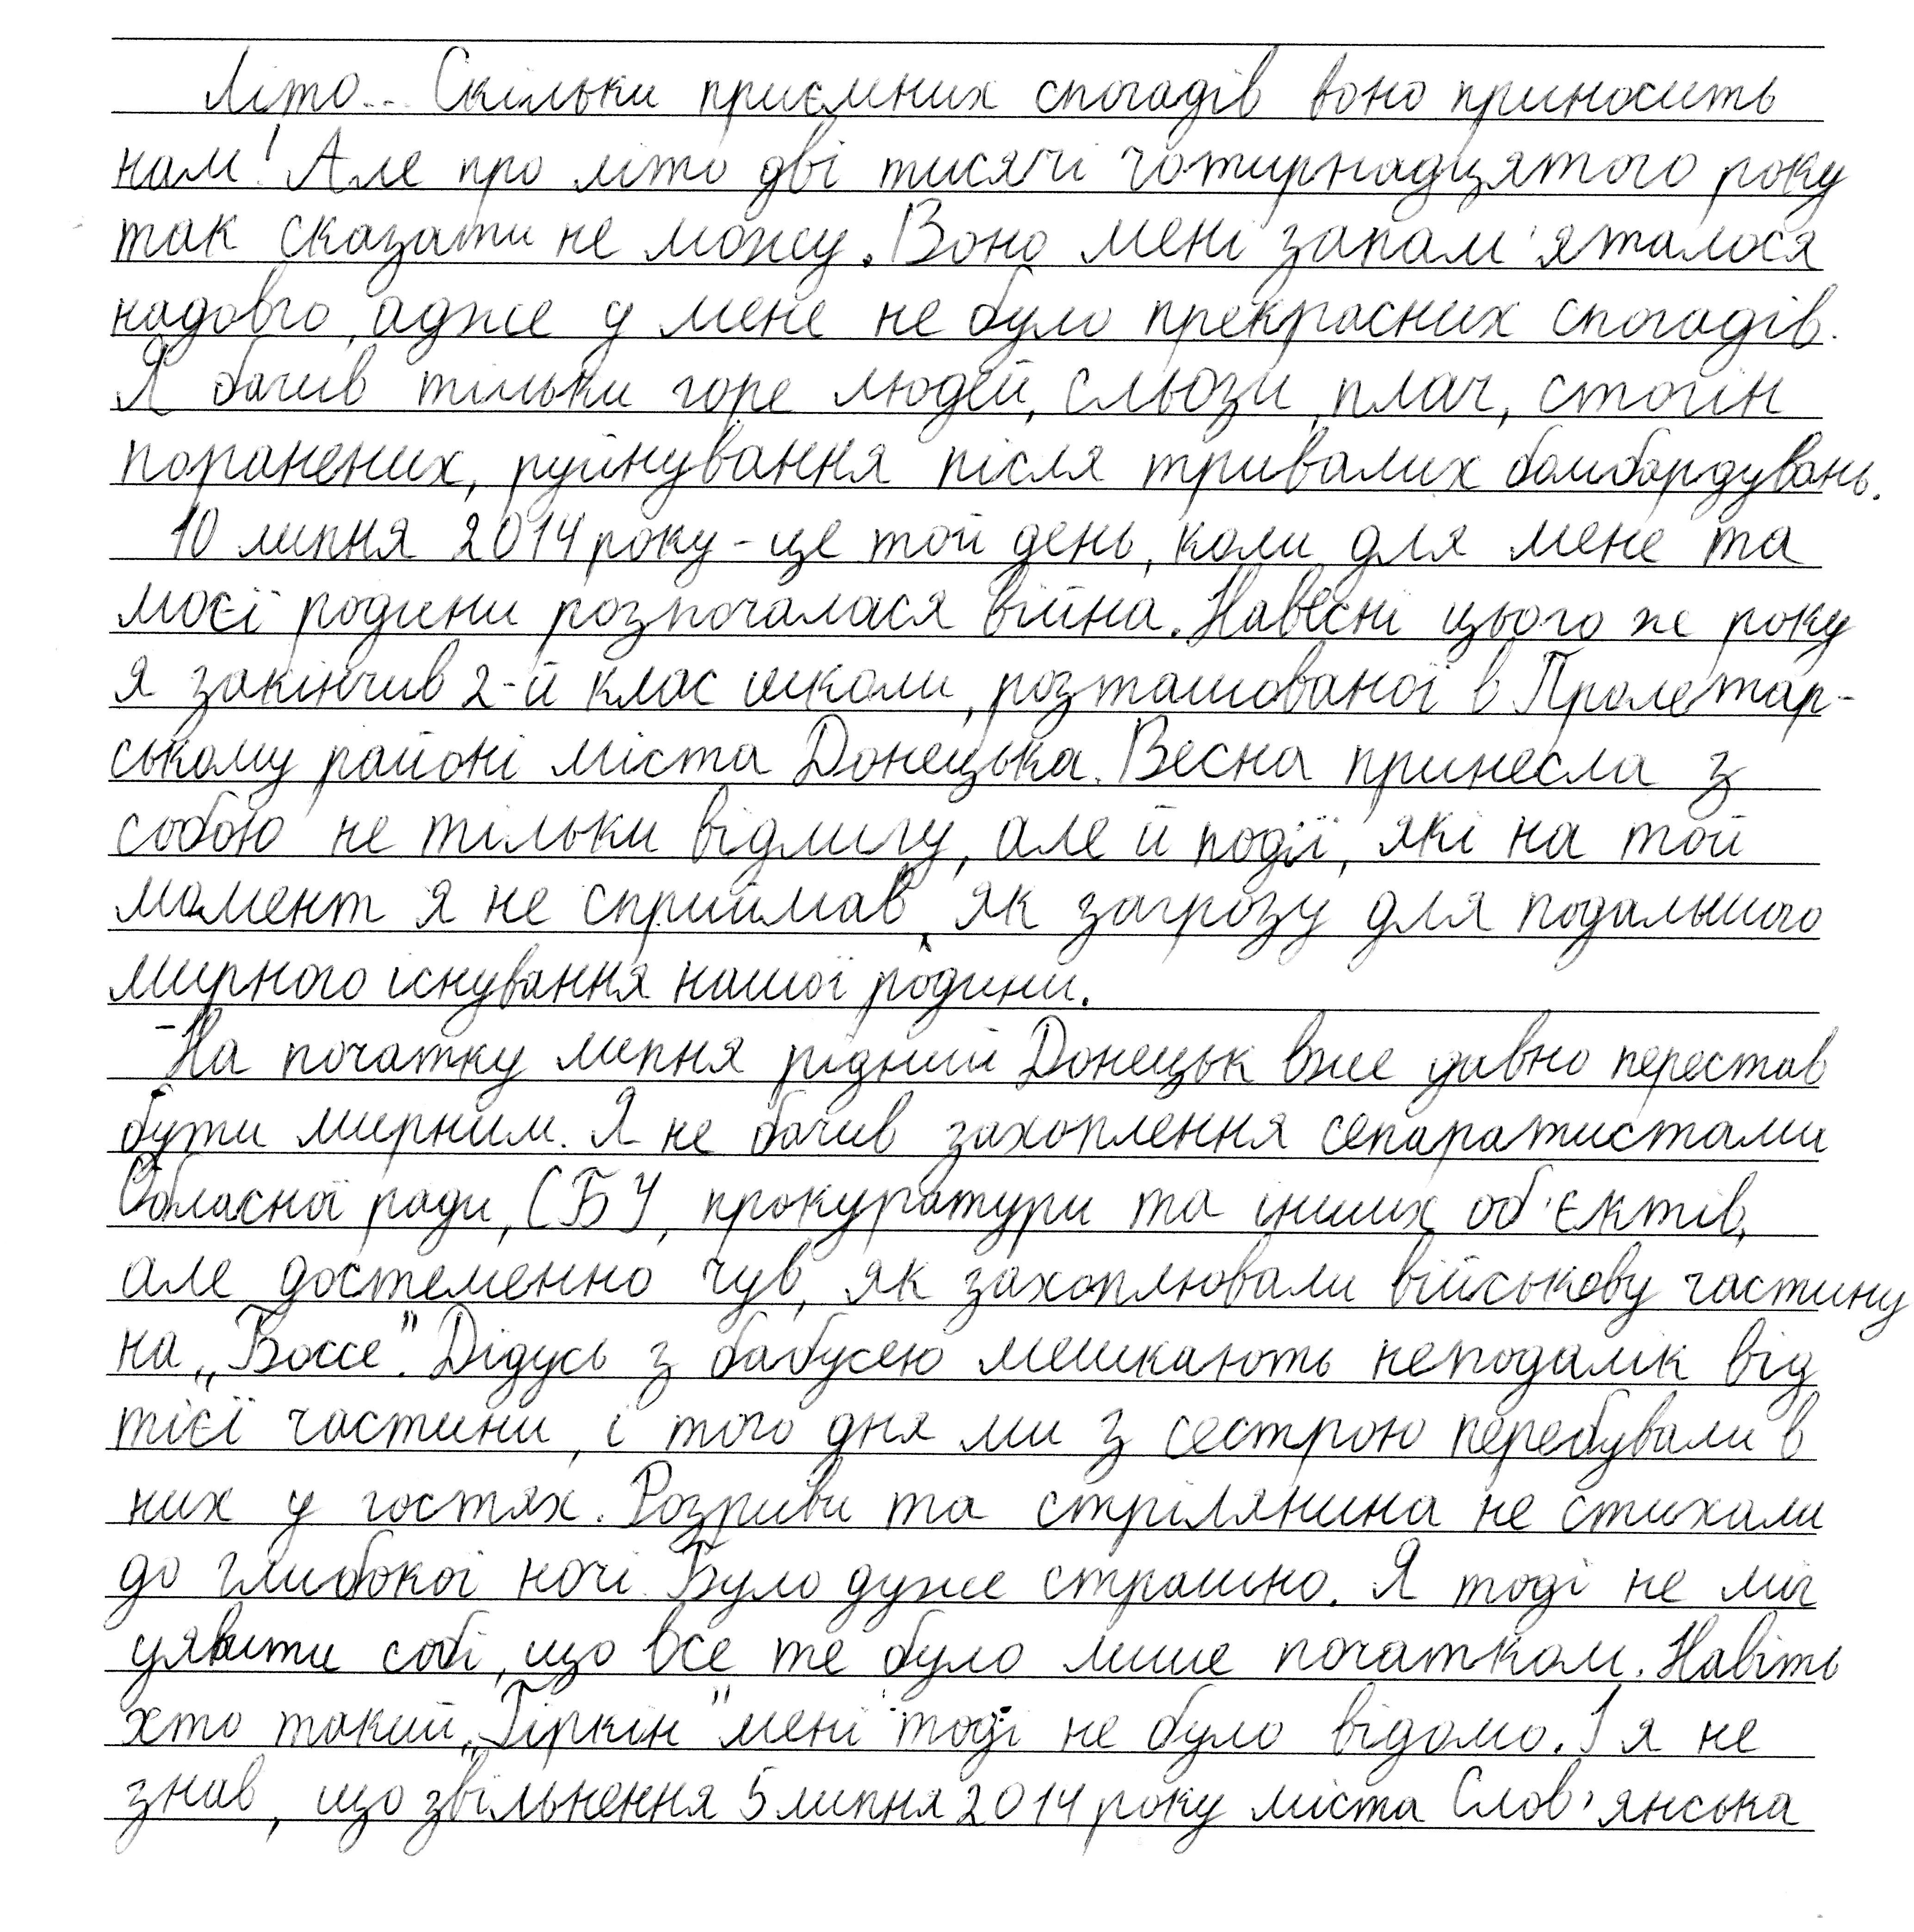 Літо... Скільки приємних спогадів воно приносить
нам! Але про літо дві тисячі чотирнадцятого року
так сказати не можу. Воно мені запам'яталося
надовго, адже у мене не було прекрасних спогадів.
Я бачив тільки горе людей, сльози, плач, стогін
поранених, руйнування після тривалих бомбардувань.
10 липня 2014 року - це той день, коли для мене та
моєї родини розпочалася війна. Навесні цього же року
я закінчив 2-й клас школи, розташованої в Пролетар-
ському районі міста Донецька. Весна принесла з
собою не тільки відлигу, але й події, які на той
момент я не сприймав, як загрозу для подальшого
мирного існування нашої родини.
-На початку липня рідний Донецьк вже давно перестав
бути мирним. Я не бачив захоплення сепаратистами
Обласної ради, СБУ, прокуратури та інших об'єктів,
але достеменно чув, як захоплювали військову частину
на „Боссе". Дідусь з бабусею мешкають неподалік від
тієї частини, і того дня ми з сестрою перебували в
них у гостях. Розриви та стрілянина не стихали
до глибокої ночі. Було дуже страшно. Я тоді не міг
уявити собі, що все те було лише початком. Навіть
хто такий „Гіркін" мені тоді не було відомо. І я не
знав, що звільнення 5 липня 2014 року міста Слов'янська